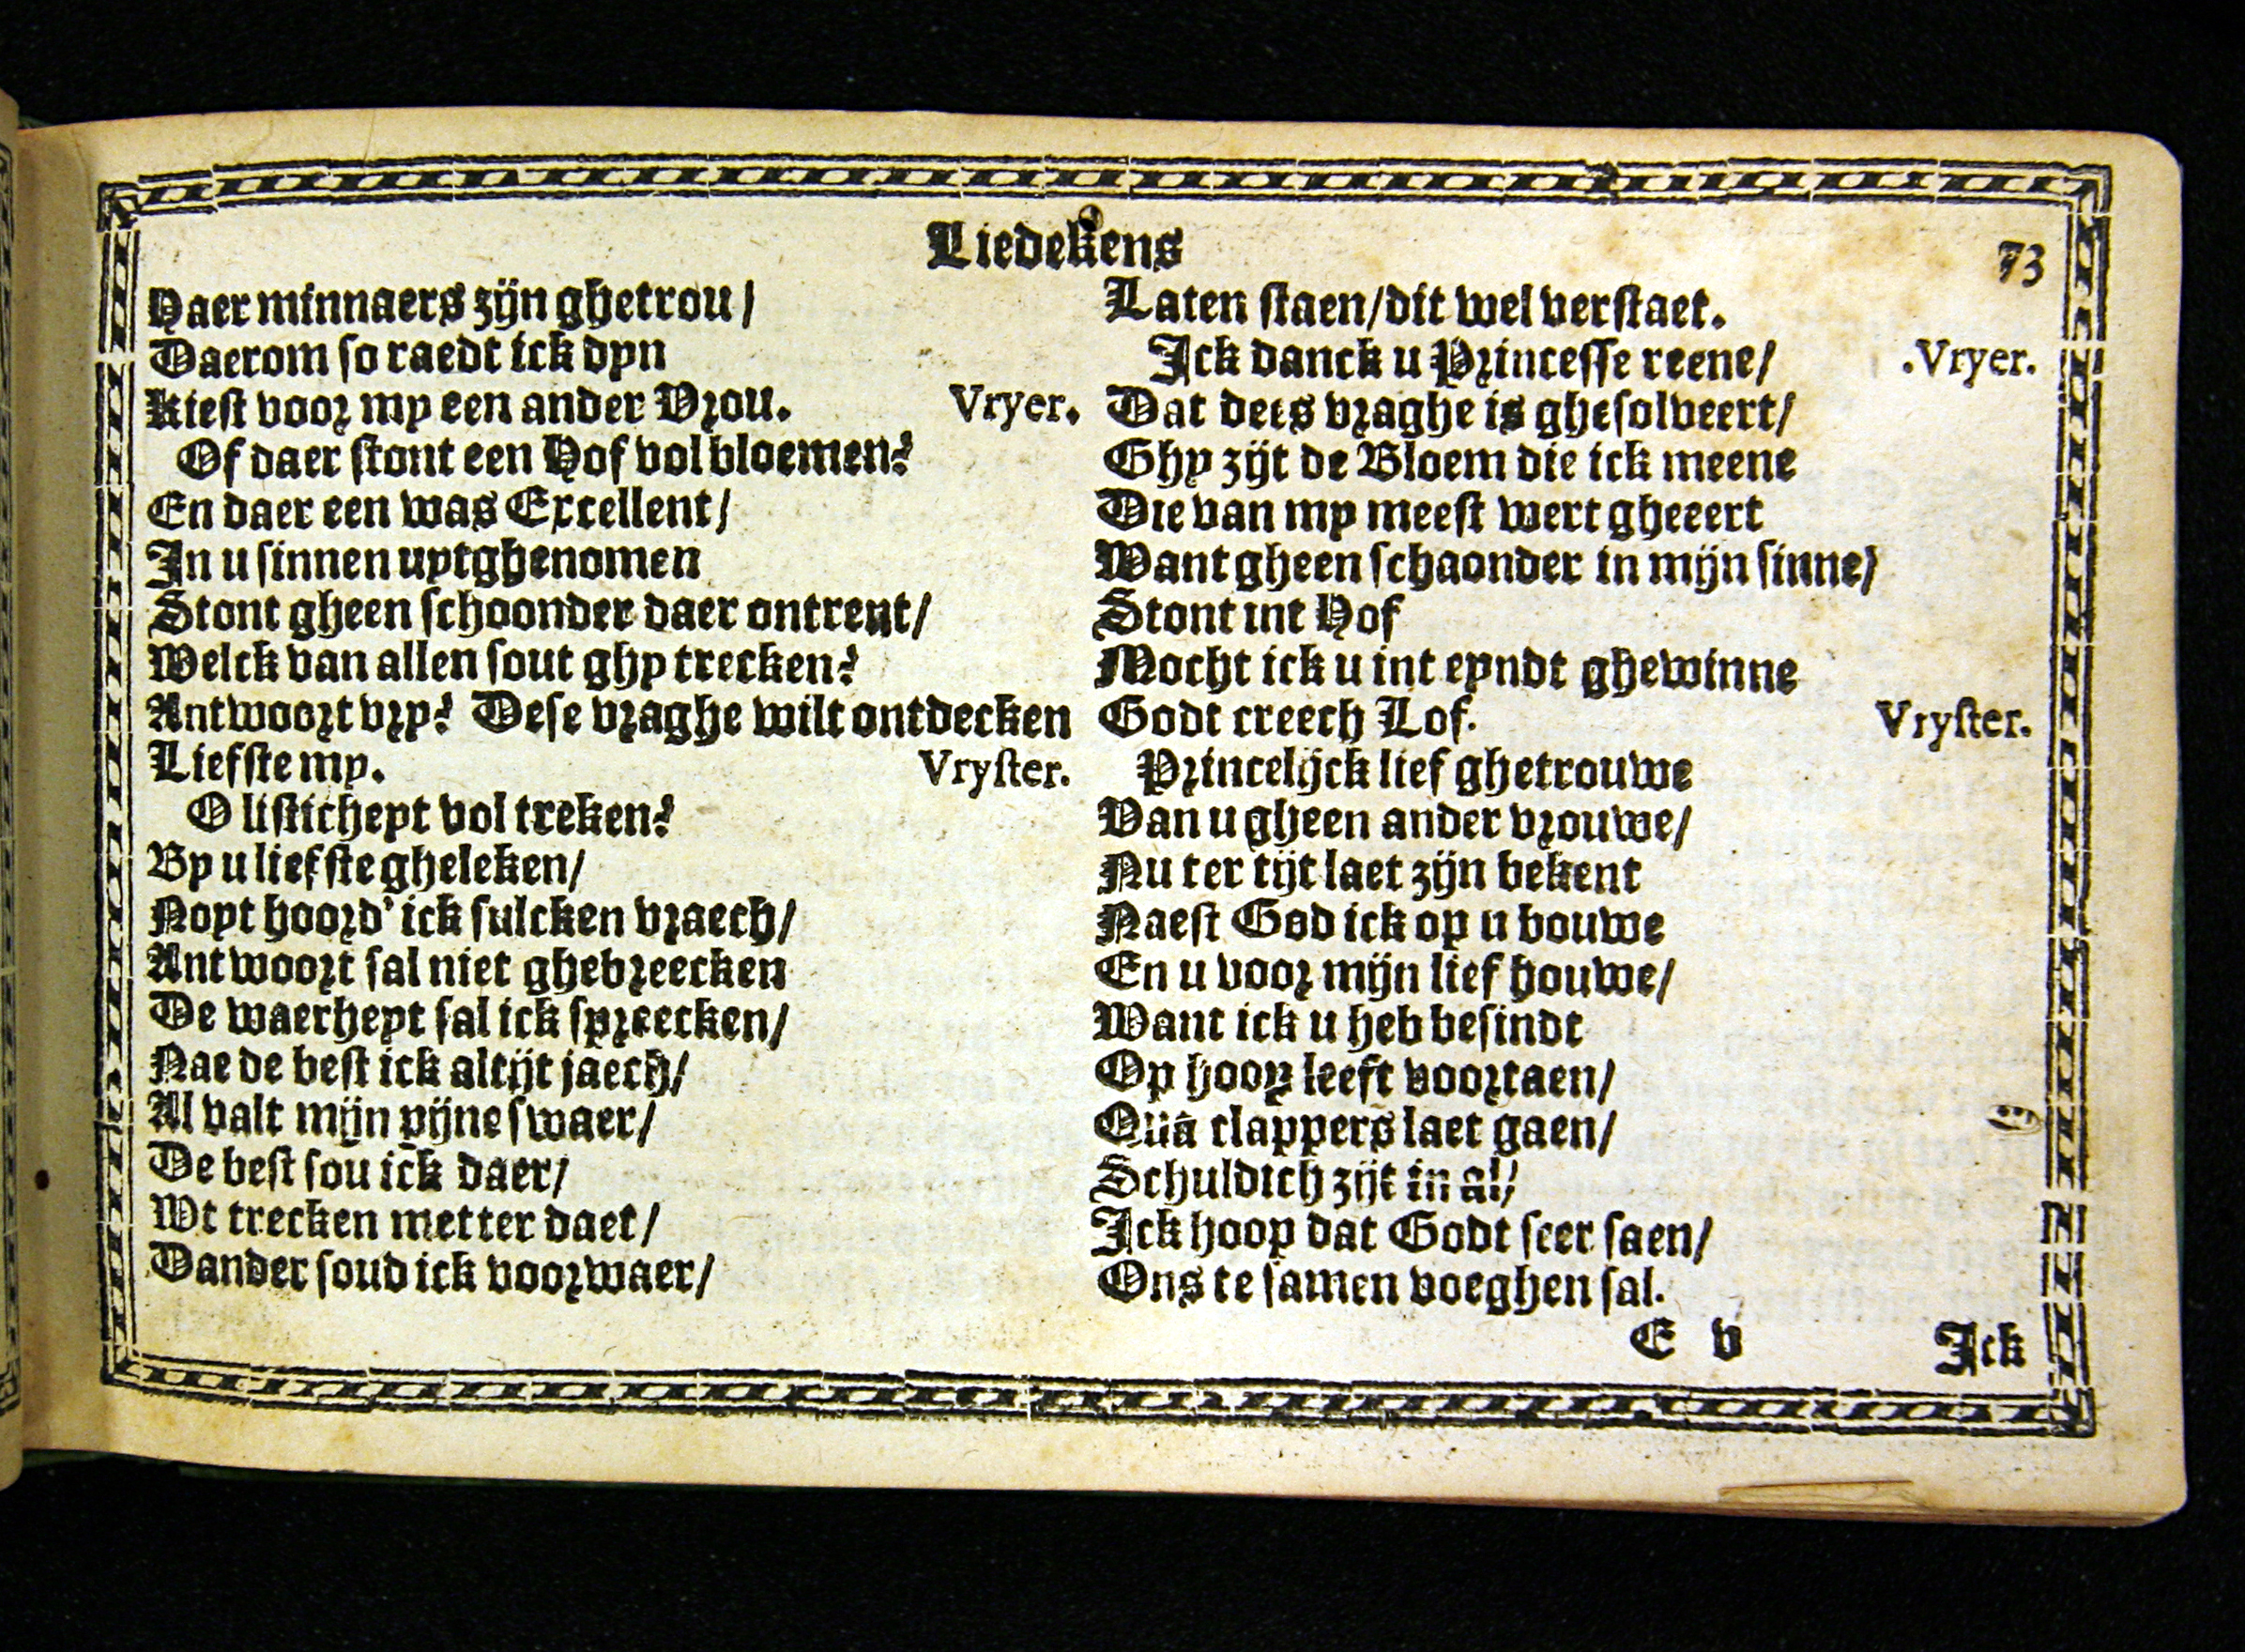 Liedekens
73
Haer minnaers zijn ghetrou/
Daerom so raedt ick dyn
Kiest voor my een ander Vrou.
Vryer.
Of daer stont een Hof vol bloemen?
En daer een was Excellent/
In u sinnen uytghenomen
Stont gheen schoonder daer ontrent/
Welck van allen sout ghy trecken?
Antwoort vry? Dese vraghe wilt ontdecken
Liefste my.
Vryster.
O listicheyt vol treken?
By u liefste gheleken/
Noyt hoord' ick sulcken vraech/
Antwoort sal niet ghebreecken
De waerheyt sal ick spreecken/
Nae de best ick altijt jaech/
Al valt mijn pijne swaer/
De best sou ick daer/
Wt trecken metter daet/
Dander soud ick voorwaer/
Laten staen/dit wel verstaet.
Ick danck u Princesse reene/
.Vryer.
Dat dees vraghe is ghesolveert/
Ghy zijt de Bloem die ick meene
Die van my meest wert gheeert
Want gheen schaonder in mijn sinne/
Stont int Hof
Mocht ick u int eyndt ghewinne
Godt creech Lof.
Vryster.
Princelijck lief ghetrouwe
Van u gheen ander vrouwe/
Nu ter tijt laet zijn bekent
Naest God ick op u bouwe
En u voor mijn lief houwe/
Want ick u heb besindt
Op hoop leeft voortaen/
Quā clappers laet gaen/
Schuldich zijt in al/
Ick hoop dat Godt seer saen/
Ons te samen voeghen sal.
E v
Ick